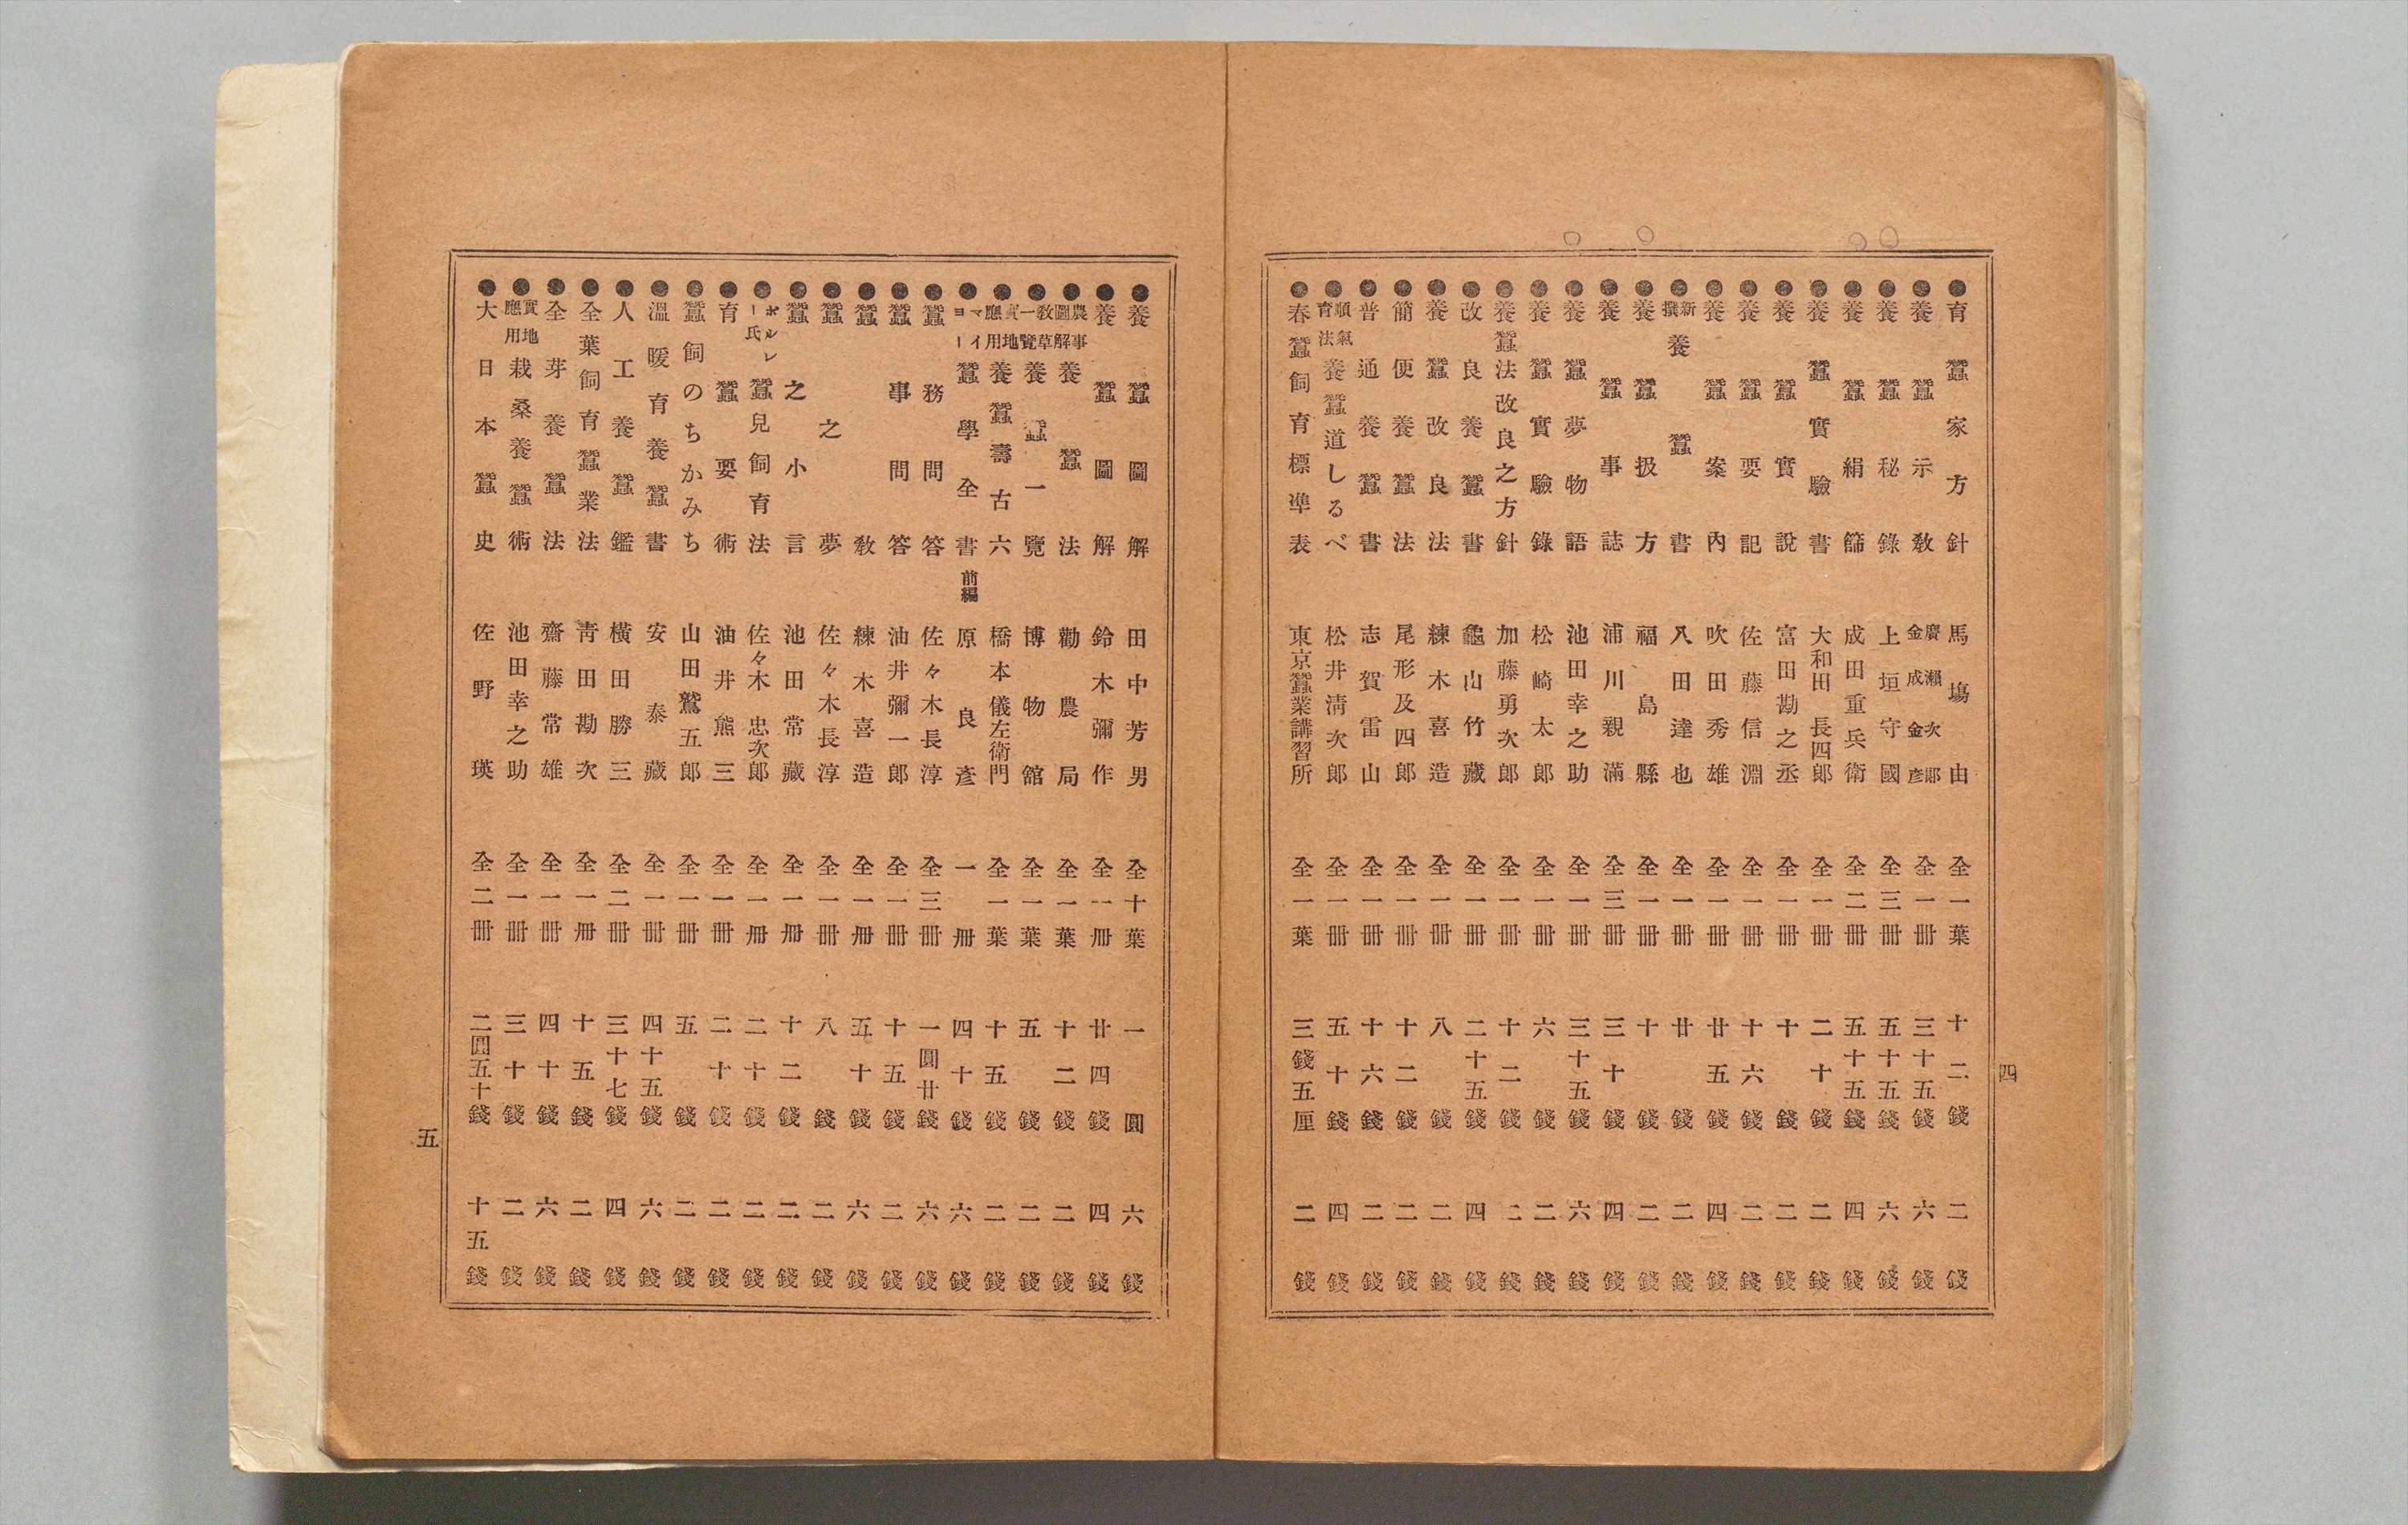 四
●育蠶家方針 馬塲由 全一葉 十二錢 二錢
●養蠶示敎 廣瀨次郞 金成金彥 全一冊 三十五錢 六錢
●養蠶秘錄 上垣守國 全三冊 五十五錢 六錢
●養蠶絹篩 成田重兵衛 全二冊 五十五錢 四錢
●養蠶實驗書 大和田長四郞 全一冊 二十錢 二錢
●養蠶實說 富田勘之丞 全一冊 十錢 二錢
●養蠶要記 佐藤信淵 全一冊 十六錢 二錢
●養蠶案內 吹田秀雄 全一冊 廿五錢 四錢
●新撰養蠶書 八田達也 全一冊 廿錢 二錢
●養蠶扱方 福島縣 全一冊 十錢 二錢
●養蠶事誌 浦川親滿 全三冊 三十錢 四錢
●養蠶夢物語 池田幸之助 全一冊 三十五錢 六錢
●養蠶實驗錄 松崎太郞 全一冊 六錢 二錢
●養蠶法改良之方針 加藤勇次郞 全一冊 十二錢 二錢
●改良養蠶書 龜山竹藏 全一冊 二十五錢 四錢
●養蠶改良法 練木喜造 全一冊 八錢 二錢
●簡便養蠶法 尾形及四郞 全一冊 十二錢 二錢
●普通養蠶書 志賀雷山 全一冊 十六錢 二錢
●順氣育法養蠶道しるべ 松井淸次郞 全一冊 五十錢 四錢
●春蠶飼育標凖表 東京蠶業講習所 全一葉 三錢五厘 二錢
●養蠶圖解 田中芳男 全十葉 一圓 六錢
●養蠶圖解 鈴木彌作 全一冊 廿四錢 四錢
●農事圖解養蠶法 勸農局 全一葉 十二錢 二錢
●敎草一覽養蠶一覽 博物舘 全一葉 五錢 二錢
●實地應用養蠶壽古六 橋本儀左衛門 全一葉 十五錢 二錢
●マイヨー蠶學全書前編 原良彥 一冊 四十錢 六錢
●蠶務問答 佐々木長淳 全三冊 一圓廿錢 六錢
●蠶事問答 油井彌一郞 全一冊 十五錢 二錢
●蠶敎 練木喜造 全一冊 五十錢 六錢
●蠶之夢 佐々木長淳 全一冊 八錢 二錢
●蠶之小言 池田常藏 全一冊 十二錢 二錢
●ボルレー氏蠶兒飼育法 佐々木忠次郞 全一冊 二十錢 二錢
●育蠶要術 油井熊三 全一冊 二十錢 二錢
●蠶飼のちかみち 山田鷲五郞 全一冊 五錢 二錢
●溫暖育養蠶書 安泰藏 全一冊 四十五錢 六錢
●人工養蠶鑑 橫田勝三 全二冊 三十七錢 四錢
●全葉飼育蠶業法 靑田勘次 全一冊 十五錢 二錢
●全芽養蠶法 齋藤常雄 全一冊 四十錢 六錢
●實地應用栽桑養蠶術 池田幸之助 全一冊 三十錢 二錢
●大日本蠶史 佐野瑛 全二冊 二圓五十錢 十五錢
五